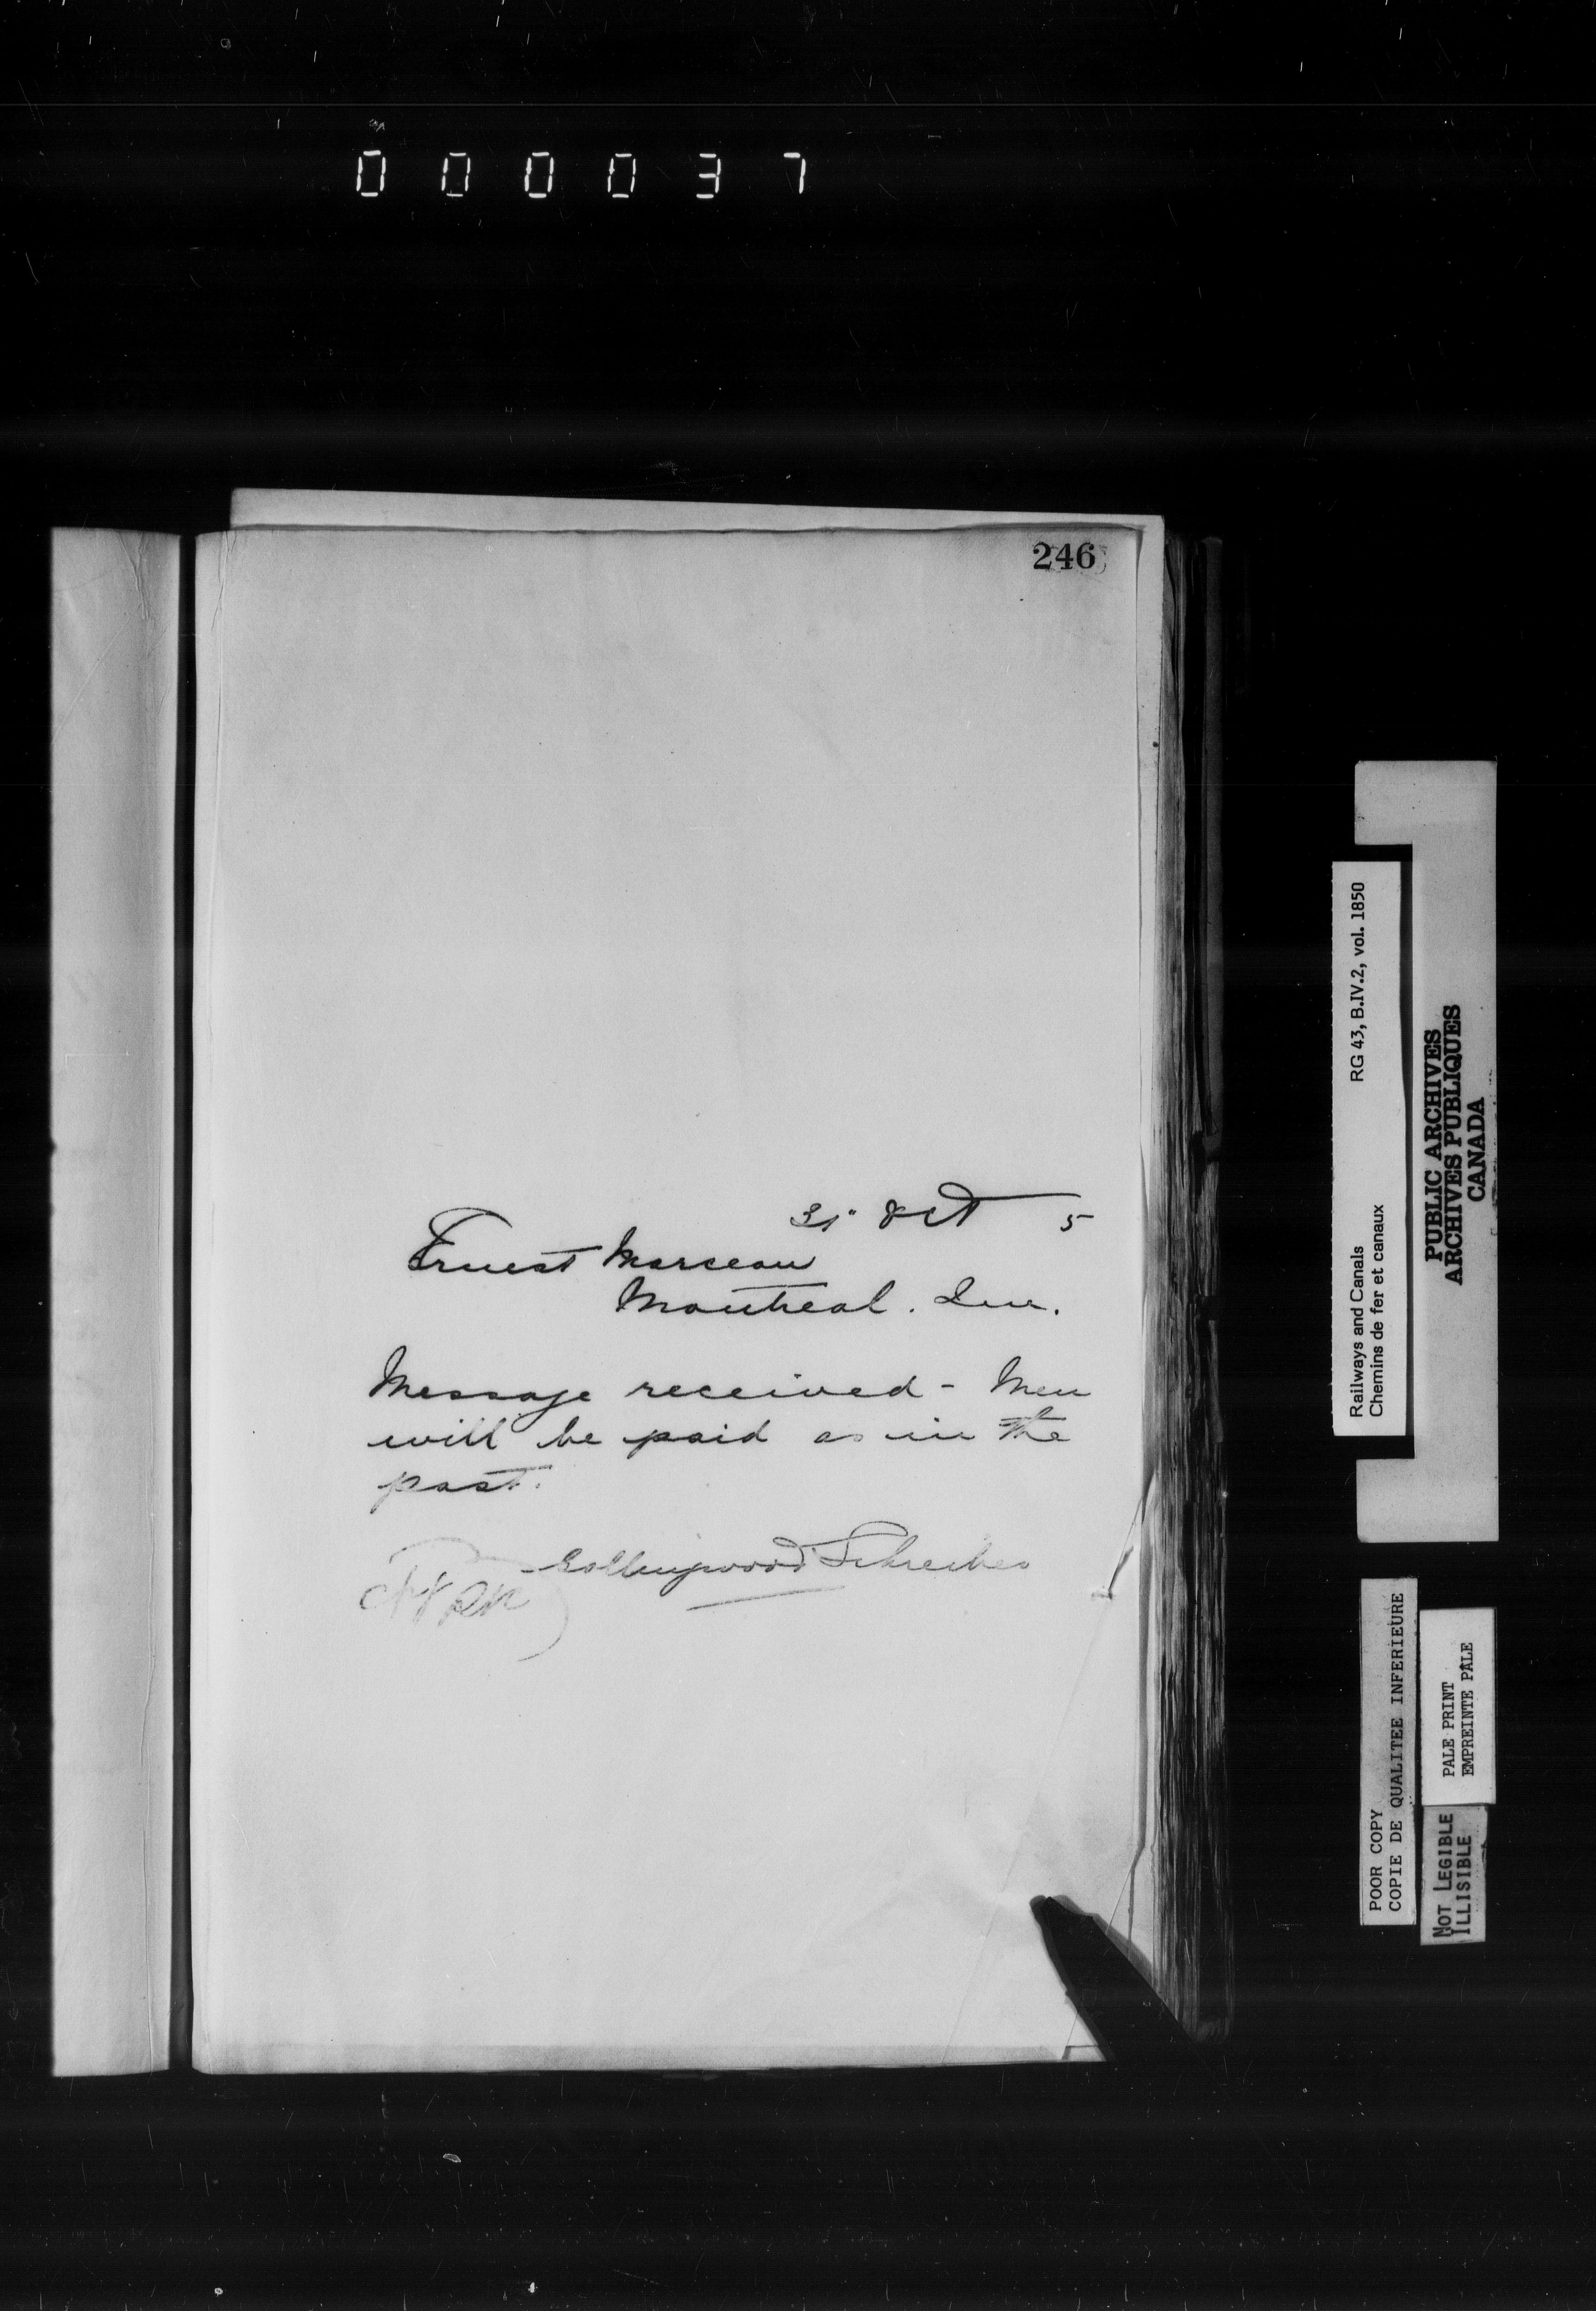 000037
246
31" Oct 5
Ernest Marceau
Montreal. Que.
Message received - Men
will be paid as in the
past.
Collingwood Schreiber
Railways and Canals RG 43, B.IV.2, vol. 1850
Chemins de fer et canaux
PUBLIC ARCHIVES
ARCHIVES PUBLIQUES
CANADA
POOR COPY
COPIE DE QUALITEE INFERIEURE
PALE PRINT
EMPREINTE PÂLE
NOT LEGIBLE
ILLISIBLE